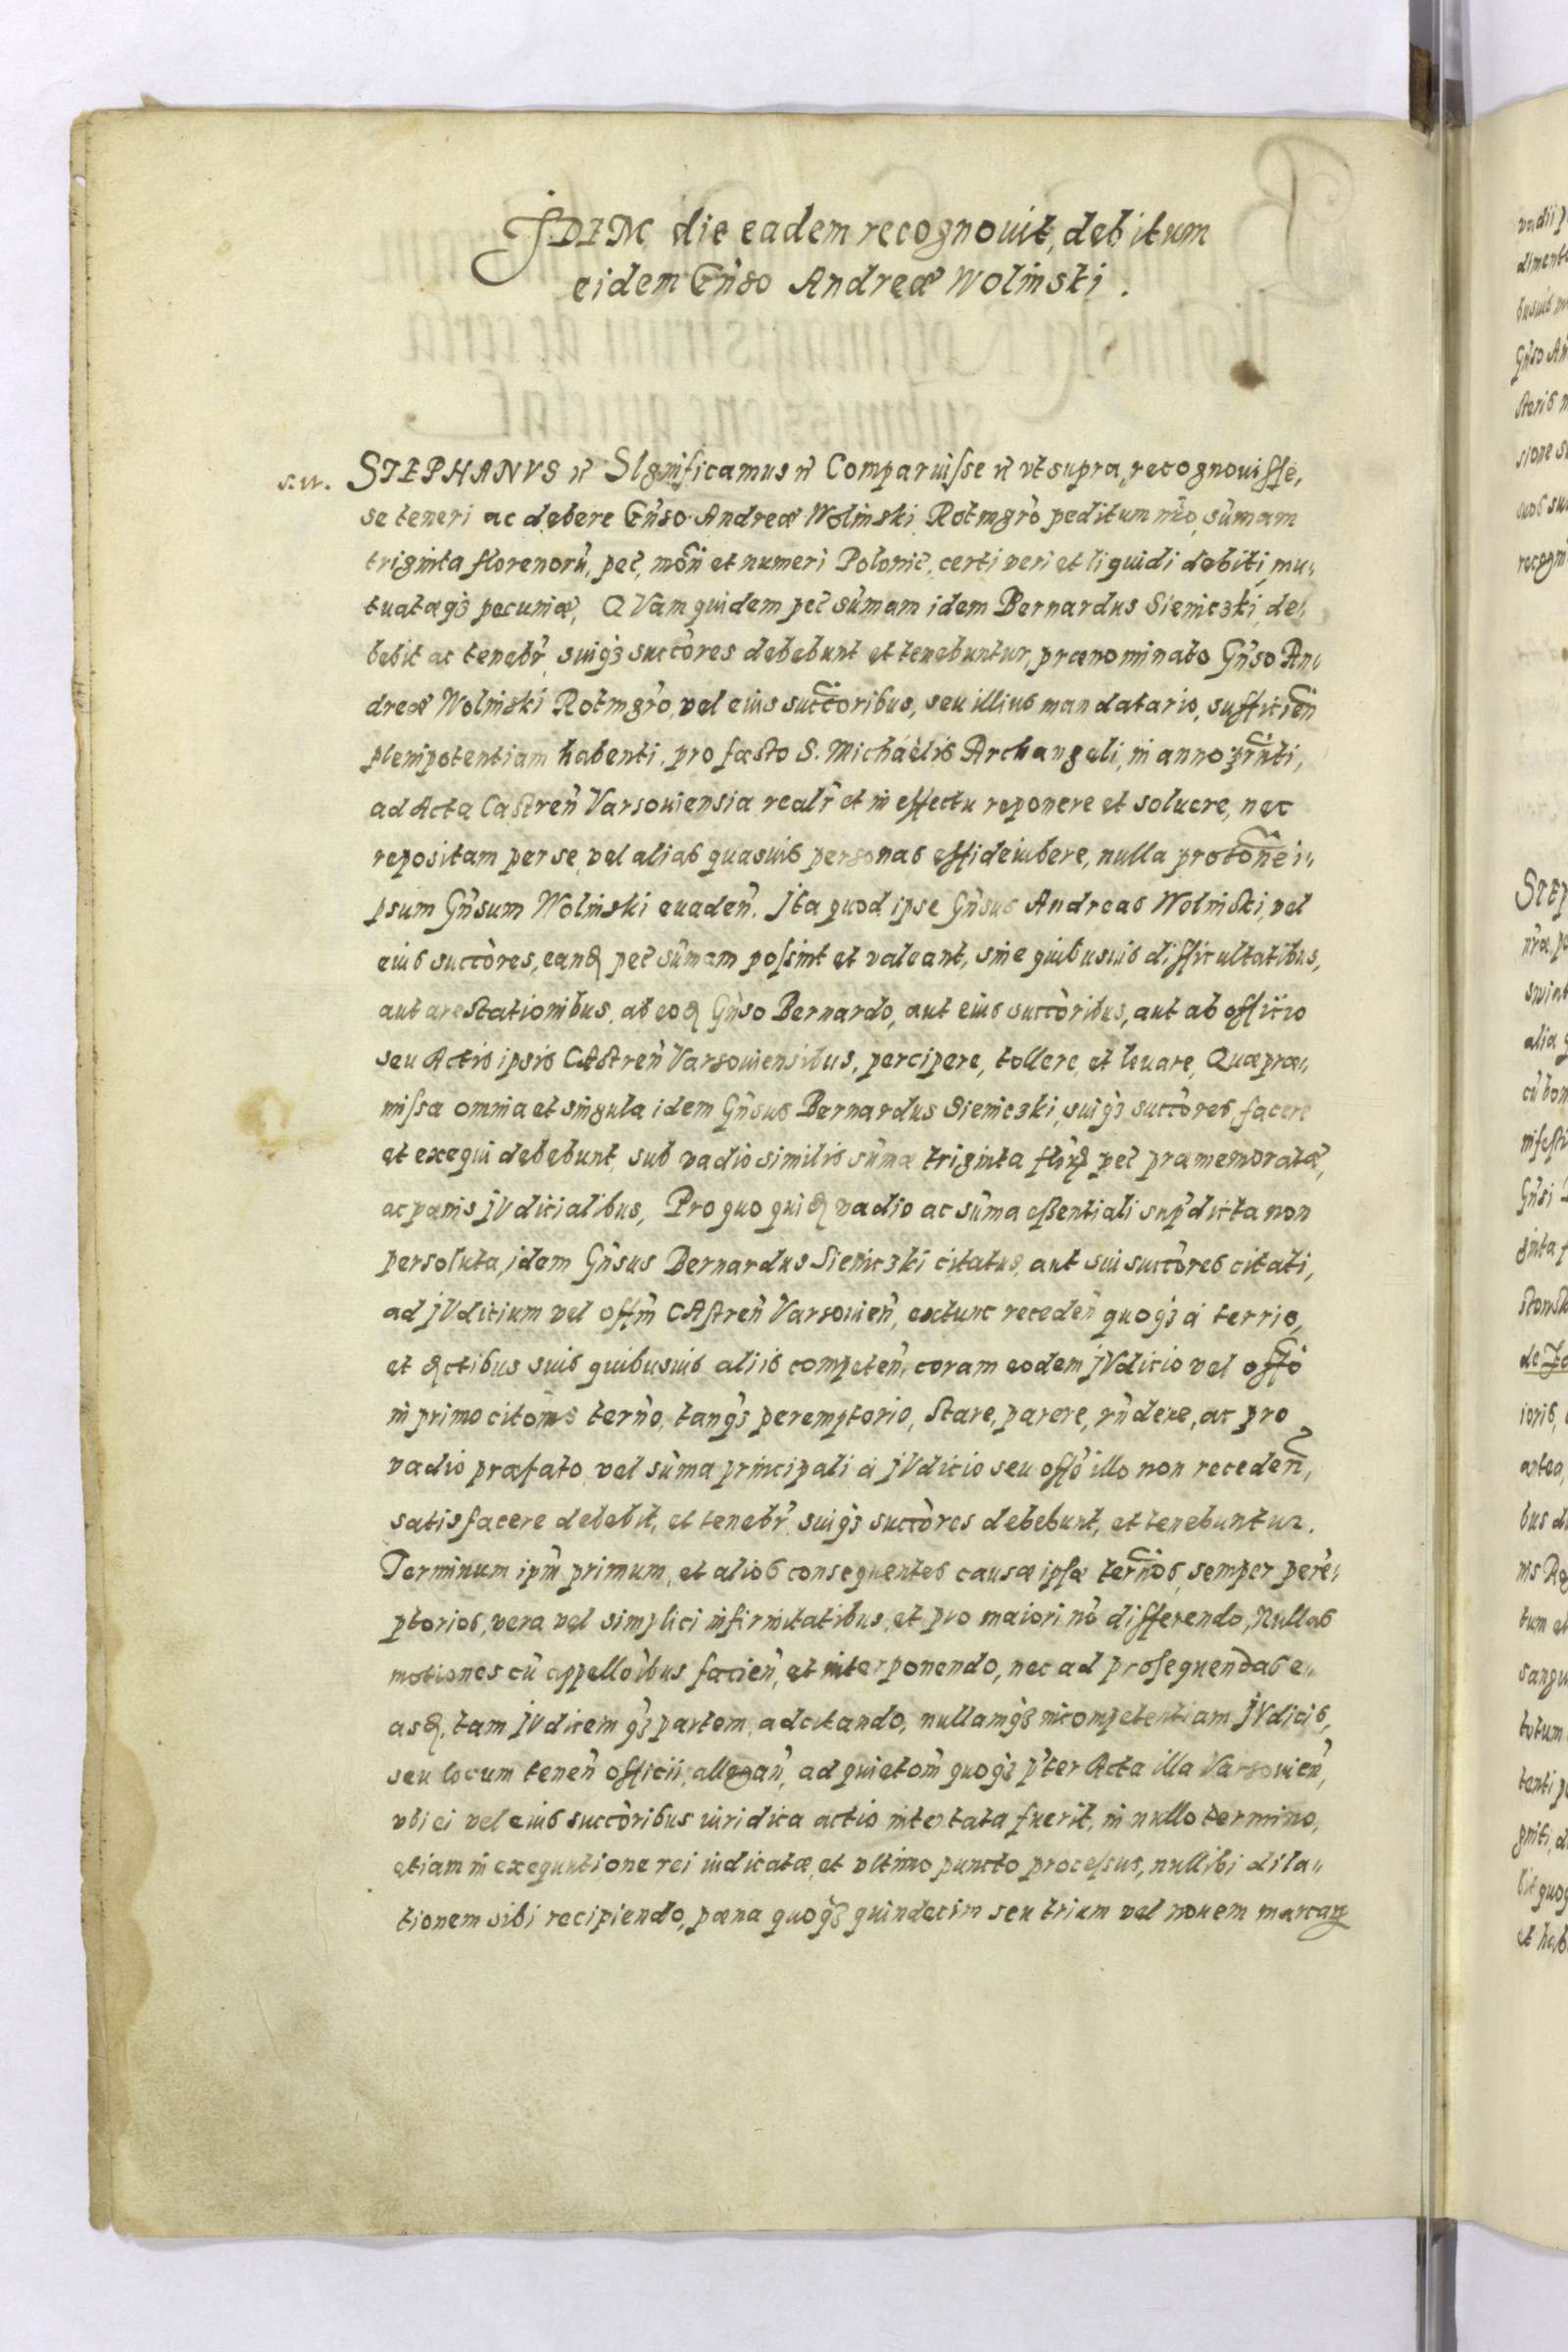 JDEM die eadem recognouit, debitum
eidem Gn̄so Andreæ Wolinski.
STEPHANVS etc̄ SIgnificamus etc̄ Comparuisse etc̄ vt supra, recognouisse,
se teneri ac debere Gn̄so Andreæ Wolinski Rotmgr̄o peditum nr̄o, sūmam
triginta florenorū, pec̄, mon̄ et numeri Polonic̄, certi veri et liquidi debiti, mu„
tuatæq₃ pecuniæ, QVam quidem pec̄ sūmam idem Bernardus Sieniczki, de„
bebit ac tenebr̄, suiq₃ succōres debebunt et tenebuntur, prænominato Gn̄so An„
dreæ Wolinski Rotmgr̄o, vel eius succōribus, seu illius mandatario, sufficien̄
plenipotentiam habenti, pro fæsto S. Michaëlis Archangeli, in anno pr̄nti,
ad Acta Castren̄ Varsouiensia realr̄ et in effectu reponere et soluere, nec
repositam per se, vel alias quasuis personas effideiubere, nulla protōne i„
psum Gn̄sum Wolinski euaden̄. Jta quod ipse Gn̄sus Andreas Wolinski, vel
eius succōres, eandꝫ pec̄ sūmam possint et valeant, sine quibusuis difficultatibus,
aut arestationibus, ab eodꝫ Gn̄so Bernardo, aut eius succōribus, aut ab officio
seu Actis ipsis CAstren̄ Varsouiensibus, percipere, tollere, et leuare, Quæ præ„
missa omnia et singula idem Gn̄sus Bernardus Sieniczki, suiq₃ succōres, facere
et exequi debebunt, sub vadio similis sūmæ triginta flōrꝝ pec̄ præmemoratæ,
ac pænis jVdicialibus, Pro quo quidꝫ vadio ac sūma essentiali sup̄dicta non
persoluta, idem Gn̄sus Bernardus Sieniczki citatus, aut sui succōres citati,
ad jVdicium vel offm̄ CAstren̄ Varsouien̄, extunc receden̄ quoq₃ à terrio,
et actibus suis quibusuis aliis competen̄, coram eodem jVdicio vel offō
in primo citōnis tern̄o, tanq₃ peremptorio, Stare, parere, rn̄dere, ac pro
vadio præfato, vel sūma principali à jVdicio seu offō illo non receden̄,
satisfacere debebit, et tenebr̄ suiq₃ succōres debebunt, et tenebuntur.
Terminum ipm̄ primum, et alios consequentes causæ ipsæ tern̄os, semper perē„
ptorios, vera vel simplici infirmitatibus, et pro maiori nō differendo, Nullas
motiones cū appellōibus facien̄, et interponendo, nec ad prosequendas e„
asdꝫ, tam jVdicem q₃ partem, adcitando, nullamq₃ incompetentiam jVdicis,
seu locum tenen̄ officii, allegan̄, ad quietōm̄ quoq₃ p̄ter Acta illa Varsouien̄,
vbi ei vel eius succōribus iuridica actio intentata fuerit, in nullo termino,
etiam in exequutione rei iudicatæ, et vltimo puncto processus, nullibi dila„
tionem sibi recipiendo, pæna quoq₃ quindecim seu trium vel nouem marcarꝝ